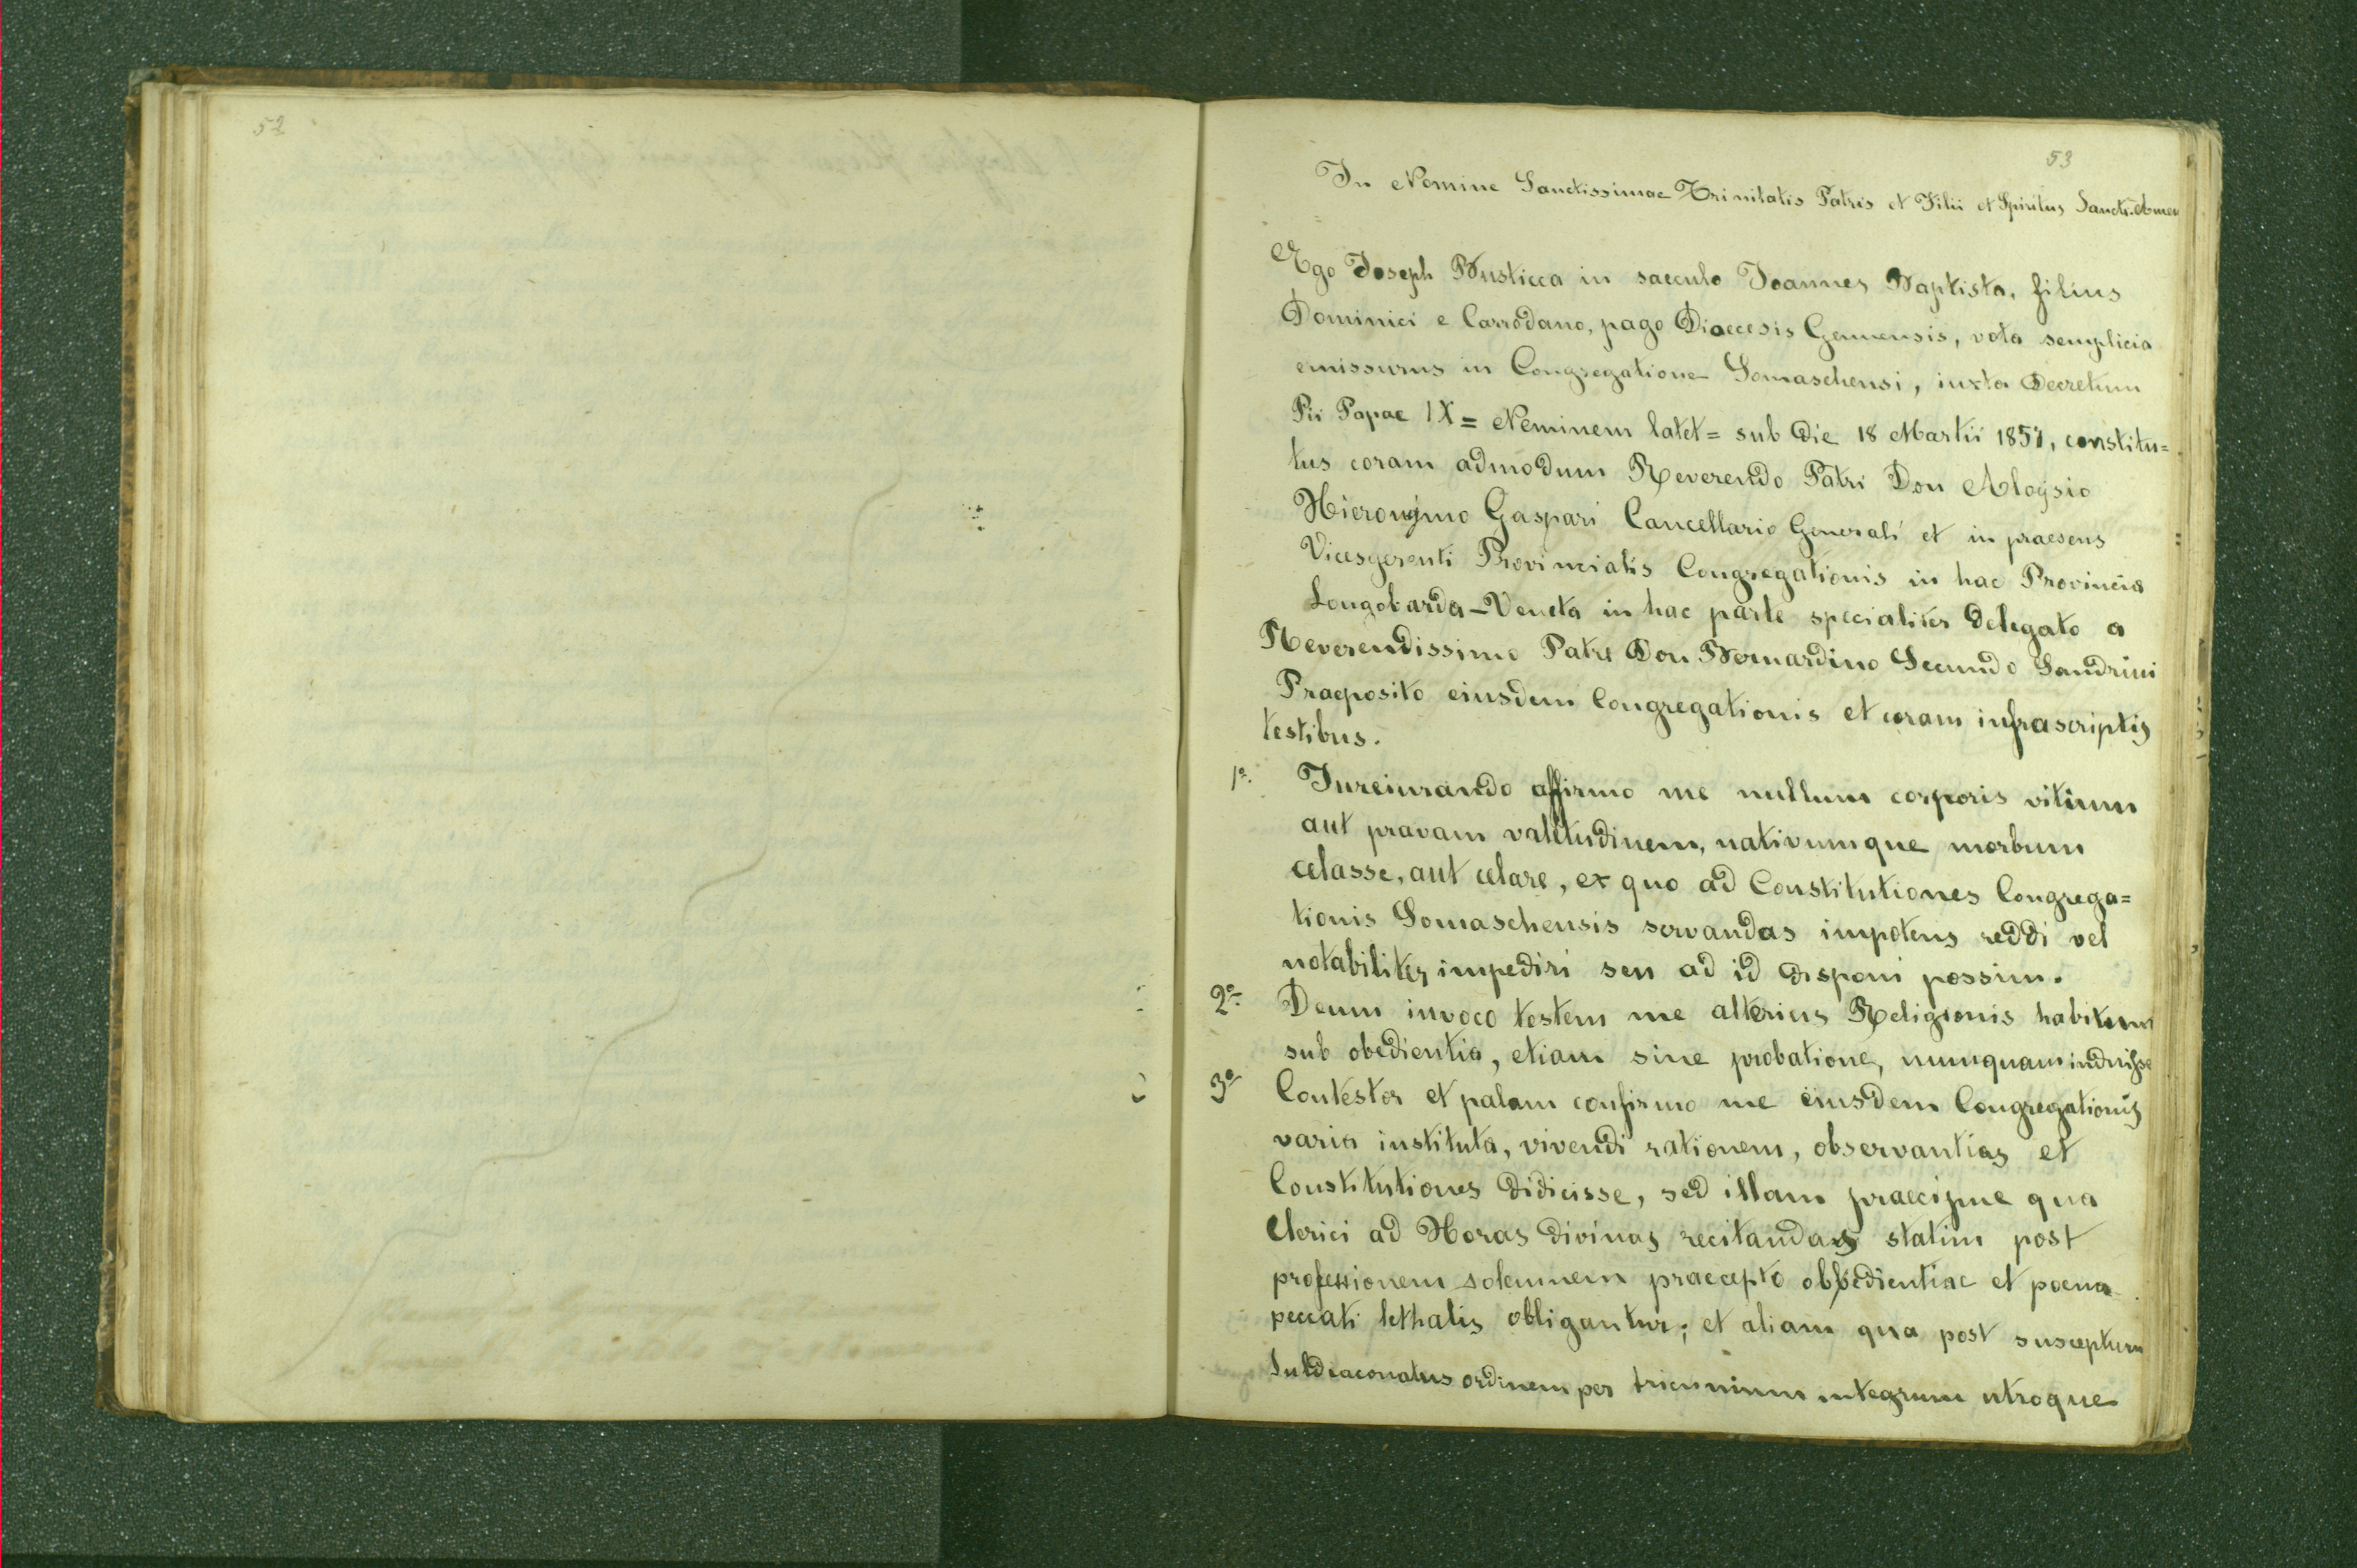 52
53
In Nomine Sanctissimae Trinitatis Patris et Filii et Spiritus Sancti. Amen
Ego Joseph Busticca in saeculo Joannes Baptista, filius
Dominici e Carrodano, pago Dioecesis Genuensis, vota semplicia
emissurus in Congregatione Somaschensi, iuxta Decretum
Pii Papae IX = Neminem latet = sub die 18 Martii 1857, constitu=
tus coram admodum Reverendo Patri Don Aloÿsio
Hieronÿmo Gaspari Cancellario Generali et in praesens
Vicesgerenti Provincialis Congregationis in hac Provincia
Longobarda-Veneta in hac parte specialiter delegato a
Reverendissimo Patre Don Bernardino Secundo Sandrini
Praeposito eiusdem Congregationis et coram infrascriptis
testibus.
1º. Jureiurando affirmo me nullum corporis vitium
aut pravam valetudinem, nativumque morbum
celasse, aut celare, ex quo ad Constitutiones Congrega=
tionis Somaschensis servandas impotens reddi vel
notabiliter impediri seu ad id disponi possim.
2º. Deum invoco testem me alterius Religionis habitum
sub obedientia, etiam sine probatione, nunquam induisse
3º Contestor et palam confirmo me eiusdem Congregationis
varia instituta, vivendi rationem, observantias et
Constitutiones didicisse, sed illam praecipue qua
Clerici ad Horas divinas recitandas statim post
professionem solemnem praecepto obbedientiae et poena
peccati lethalis obligantur; et aliam qua post susceptum
Subdiaconatus ordinem per triennium integrum utroque